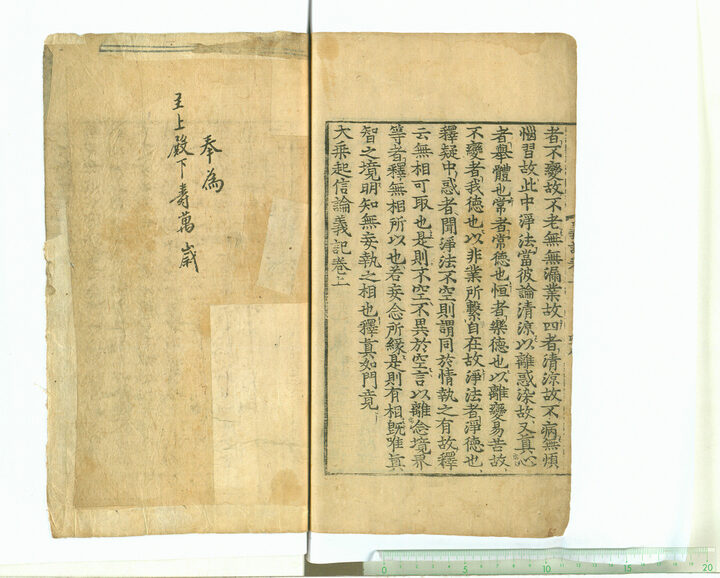 者不變故不老無無漏業故四者清涼故不病無煩
惱習故此中淨法當彼論清涼以離惑染故又真心
者舉體也常者常德也恒者樂德也以離變易苦故
不變者我德也以非業所繫自在故淨法者淨德也
釋疑中惑者聞淨法不空則謂同於情執之有故釋
云無相可取也是則不空不異於空言以離念境界
等者釋無相所以也若妄念所緣是則有相既唯真
智之境明知無妄執之相也釋真如門竟
大乘起信論義記卷上
奉為
主上殿下壽萬歲
0 5 10 15 20